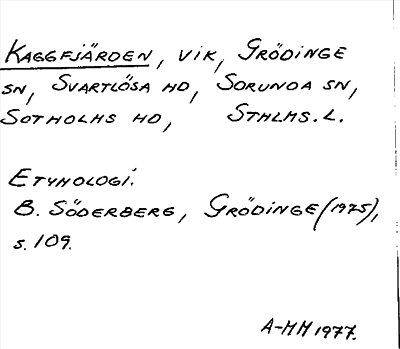 KAGGFJÄRDEN, VIK, GRÖDINGE
SN, SVARTLÖSA HD, SORUNDA SN,
SOTHOLMS HD, STHLMS. L.
ETYMOLOGI.
B. SÖDERBERG, GRÖDINGE (1975),
s. 109.
A-MM 1977.